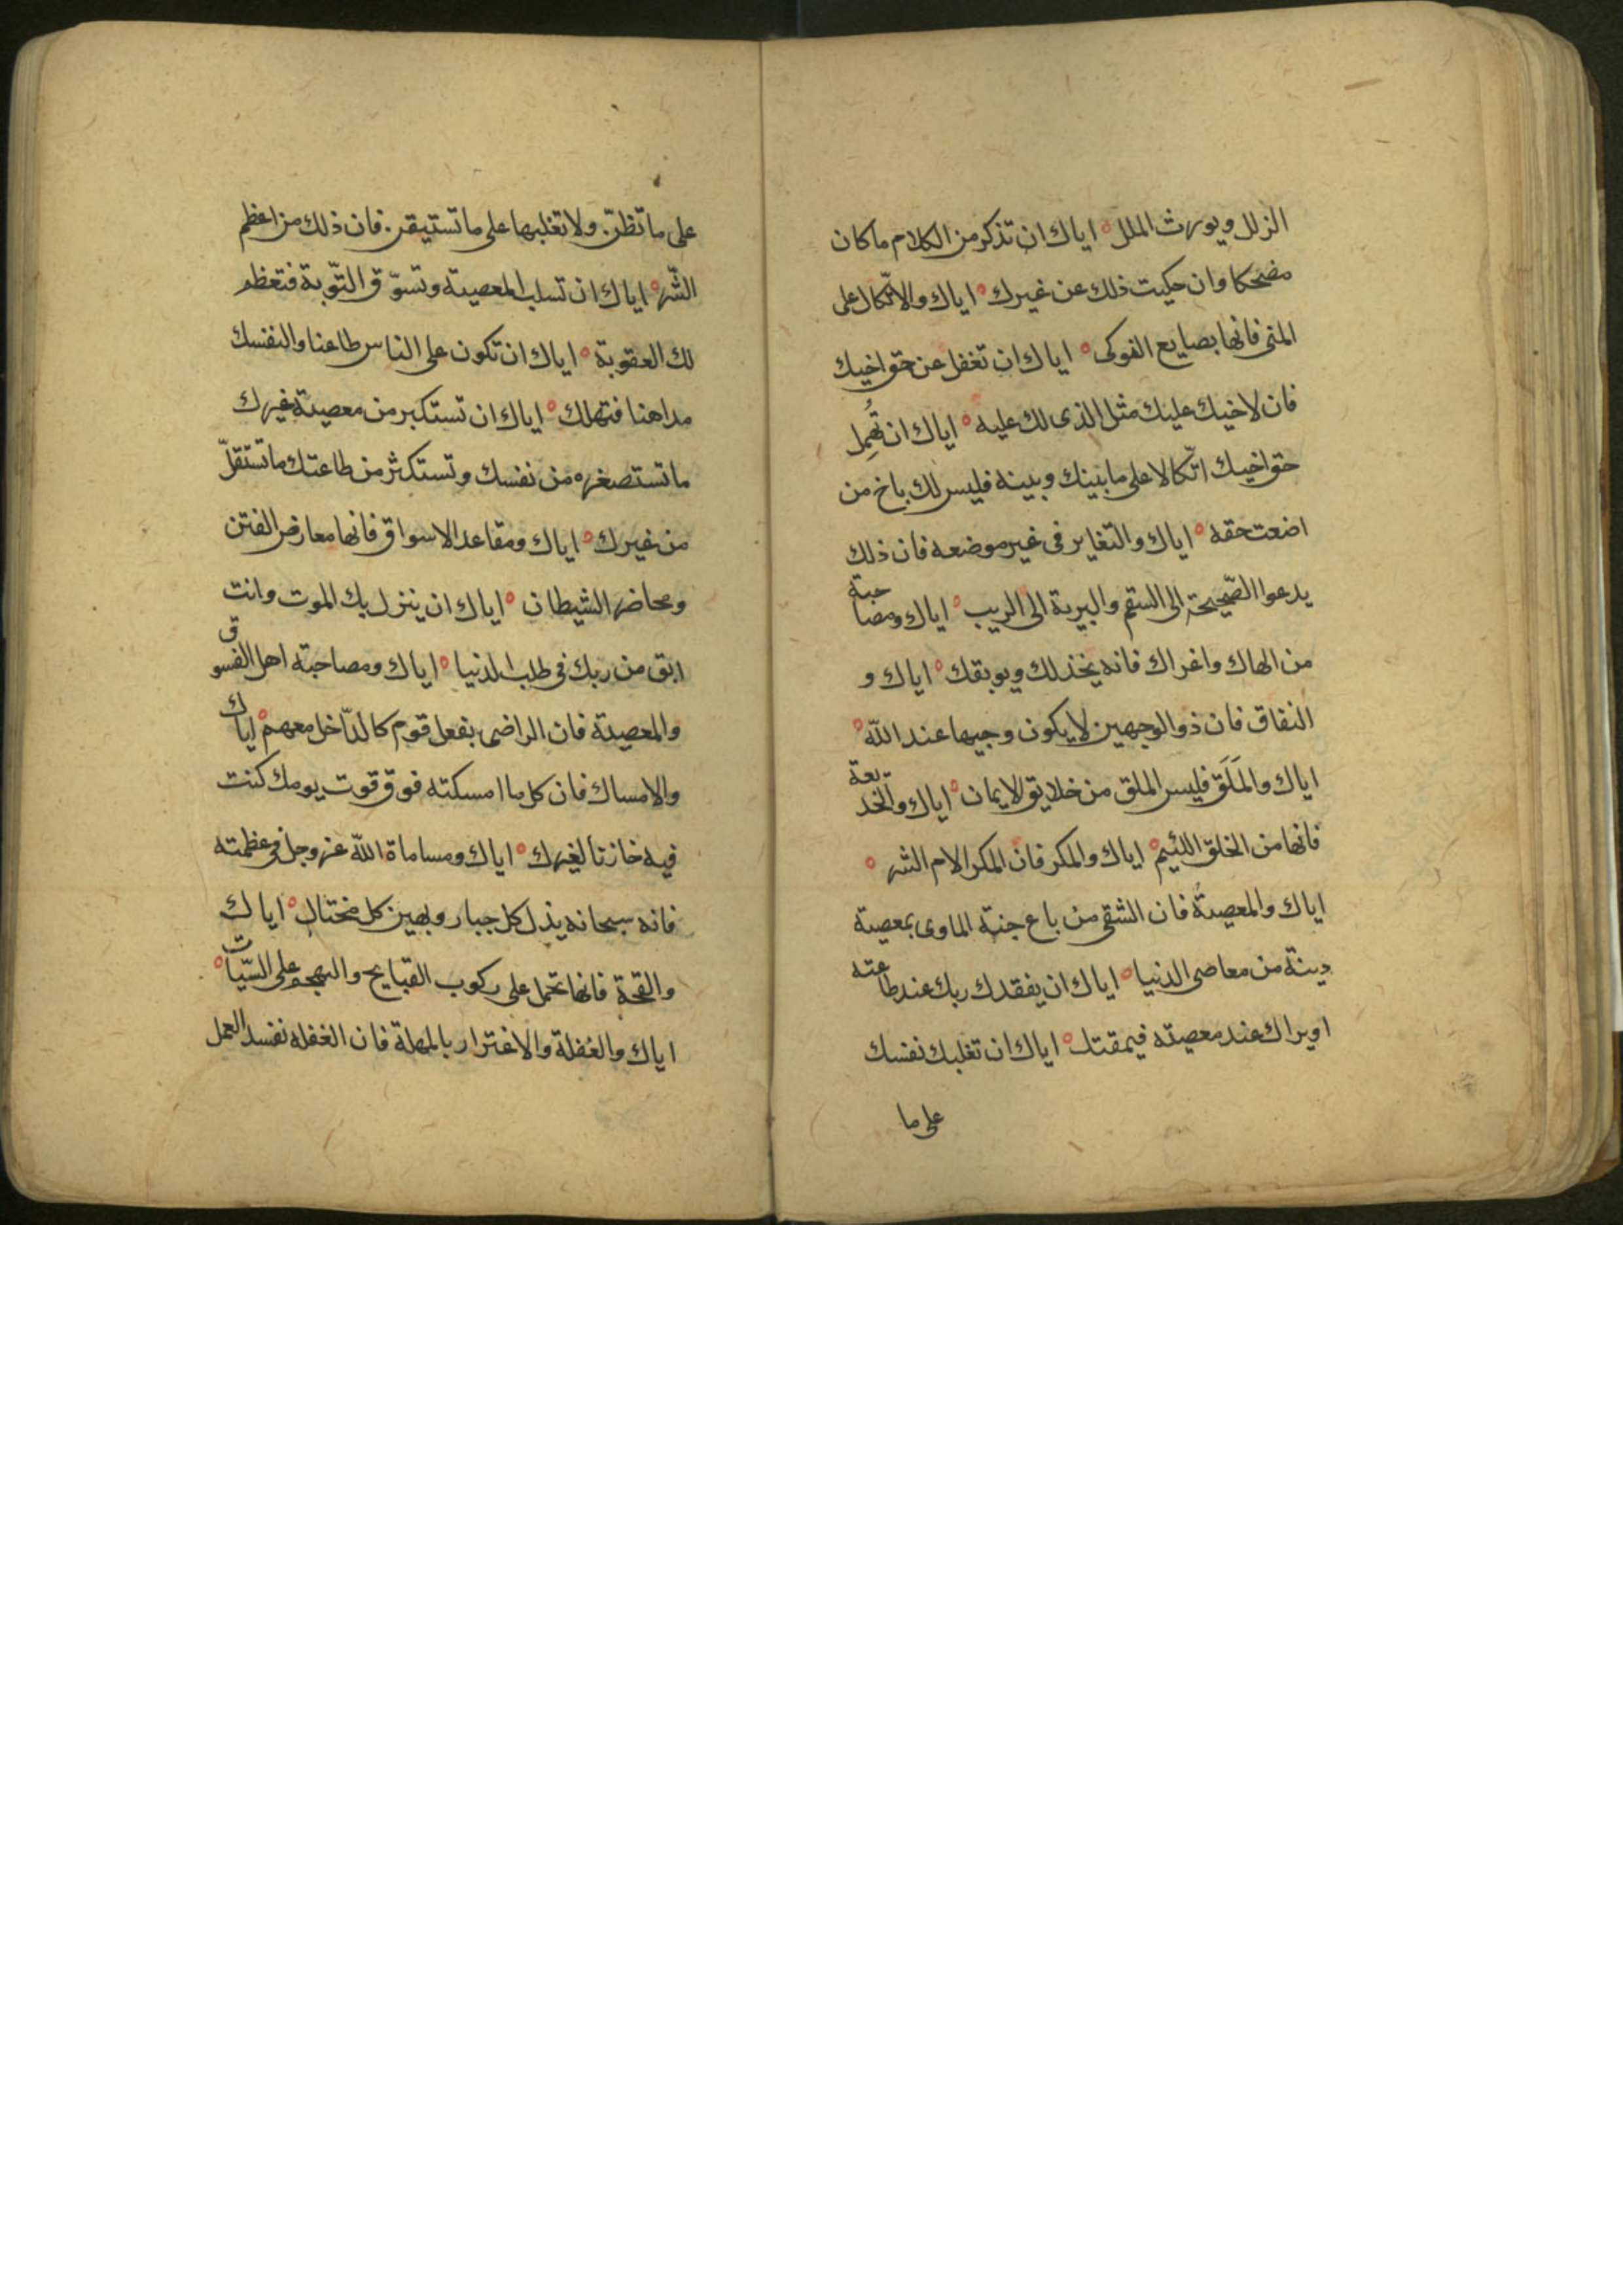 الزلل ويورث الملل ۰ اياك ان تذكر من الكلام ما كان
مضحكا وان حكيت ذلك عن غيرك ۰ اياك والاتّكال على
المنى فانها بضايع النوكى ۰ اياك ان تغفل عن حق اخيك
فان لاخيك عليك مثل الذى لك عليه ۰ اياك ان تُهمِل
حق اخيك اتّكالا على ما بينك وبينه فليس لك باخ من
اضعت حقه ۰ اياك والتغاير فى غير موضعه فان ذلك
يدعوا الصّحيحة الى السقم والبرية الى الريب ۰ اياك ومصاحبة
من الهاك واغراك فانه يخذلك ويوبقك ۰ اياك و
النفاق فان ذو الوجهين لا يكون وجيها عند الله ۰
اياك والمَلَق فليس الملق من خلايق الايمان ۰ اياك والخديعة
فانها من الخلق اللئيم ۰ اياك والمكر فان المكر الام الشر ۰
اياك والمعصية فان الشقى من باع جنة الماوى بمعصية
دينة من معاصى الدنيا ۰ اياك ان يفقدك ربك عند طاعته
او يراك عند معصيته فيمقتك ۰ اياك ان تغلبك نفسك
على ما
على ما تظنّ ولا تغلبها على ما تستيقن فان ذلك من اعظم
الشّر ۰ اياك ان تسلب المعصية وتسوّق التّوبة فتعظم
لك العقوبة ۰ اياك ان تكون على الناس طاعنا ولنفسك
مداهنا فتهلك ۰ اياك ان تستكبر من معصية غيرك
ما تستصغره من نفسك وتستكثر من طاعتك ما تستقلّ
من غيرك ۰ اياك ومقاعد الاسواق فانها معارض الفتن
ومحاضر الشيطان ۰ اياك ان ينزل بك الموت وانت
ابق من ربك فى طلب الدنيا ۰ اياك ومصاحبة اهل الفسوق
والمعصية فان الراضى بفعل قوم كالدّاخل معهم ۰ اياك
والامساك فان كل ما امسكته فوق قوت يومك كنت
فيه خازنا لغيرك ۰ اياك ومساماة الله عز وجل فى عظمته
فانه سبحانه يذل كل جبار ويهين كل مختال ۰ اياك
والقحة فانها تحمل على ركوب القبايح والتهجم على السّيّات ۰
اياك والغفلة والاغترار بالمهلة فان الغفلة تفسد العمل